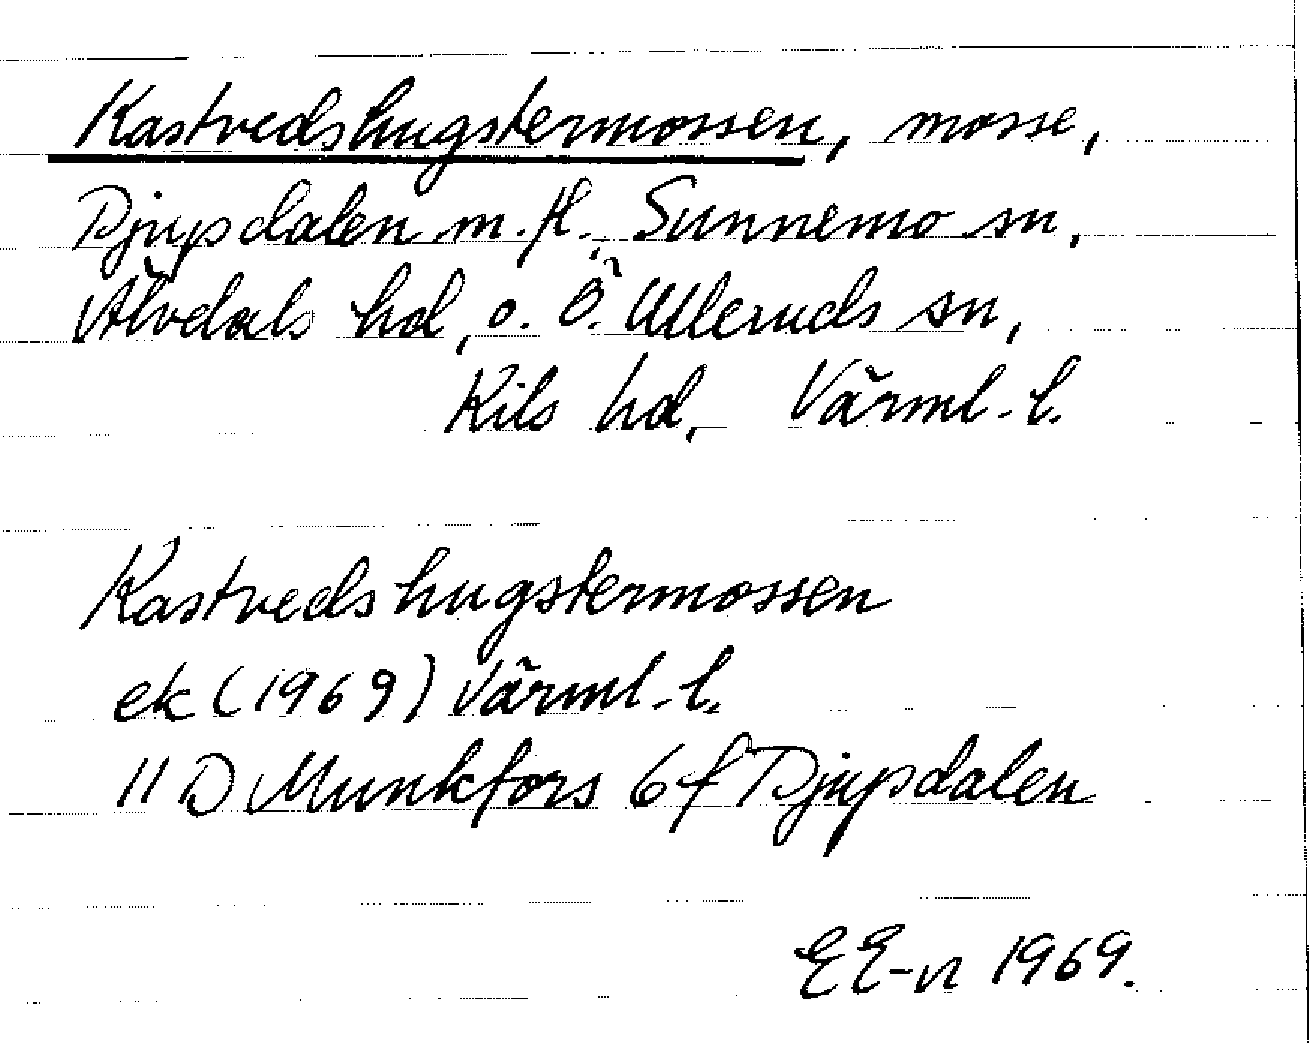 Kastvedshugstermossen, mosse,
Djupdalen m.fl., Sunnemo sn,
Älvdals hd, o. Ö. Ulleruds sn,
Kils hd, Värml. l.
Kastvedshugstermossen
ek (1969) Värml. l.
11 D Munkfors 6 f Djupdalen
EE-n 1969.